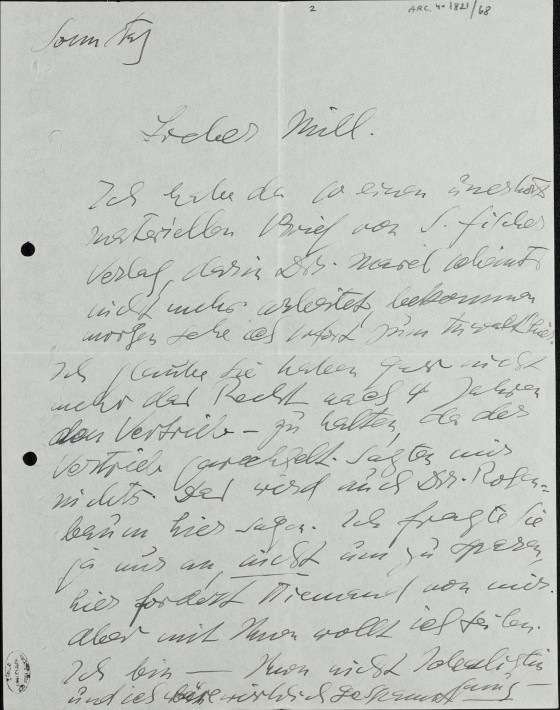 2
ARC. 4° 1821/68
Sonntag
Lieber Mill.
Ich habe da so einen unerhört
materiellen Brief von S. Fischer
Verlag, darin Dr. scheints
nicht mehr arbeitet, bekommen
morgen gehe ich sofort zum Anwalt hier.
Ich glaube Sie haben gar nicht
mehr das Recht nach 4 Jahren
den Vertrieb – zu halten, da der
Vertrieb gewechselt. Sagten mir
nichts. Das wird auch Dr. Rosen=
baum hier sagen. Ich fragte Sie
ja nur an, nicht um zu sparen,
hier fordert Niemand von mir.
Aber mit Ihnen wollt ich teilen.
Ich bin — nicht Idealistin
und ich wirklich